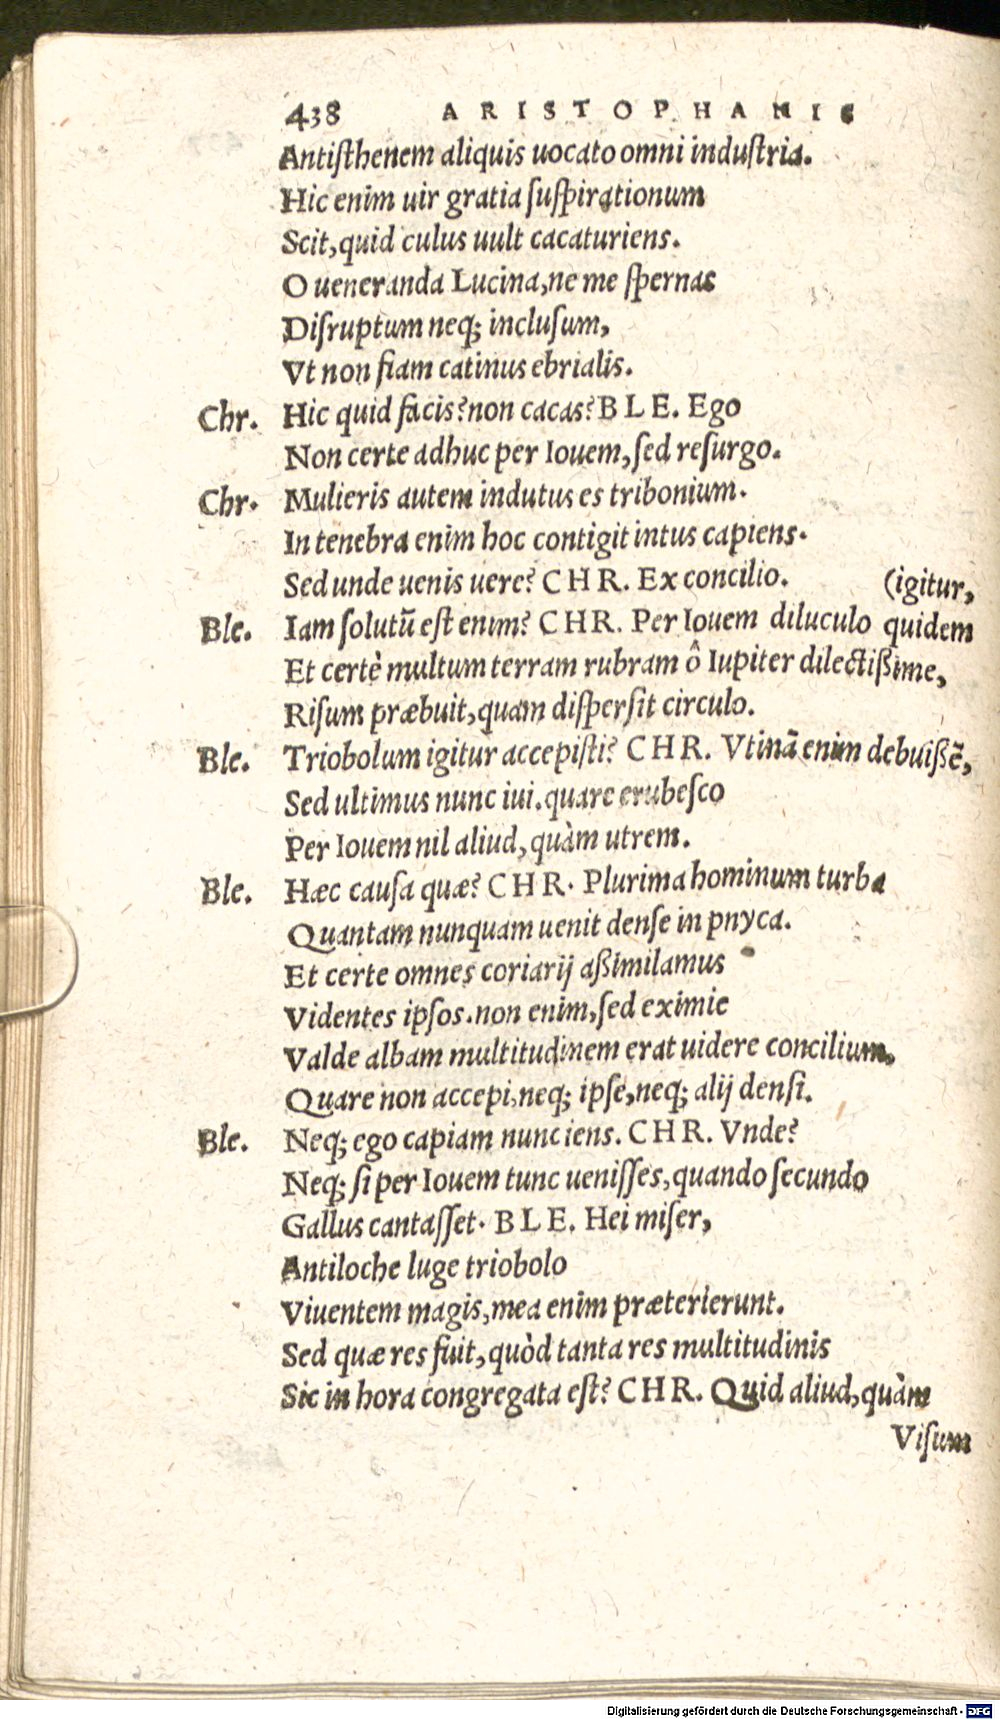 438 ARISTOPHANIS
Antisthenem aliquis uocato omni industria.
Hic enim uir gratia suspirationum
Scit, quid culus uult cacaturiens.
O ueneranda Lucina, ne me spernas
Disruptum neq; inclusum,
Vt non fiam catinus ebrialis.
Chr. Hic quid facis? non cacas? BLE. Ego
Non certe adhuc per Iouem, sed resurgo.
Chr. Mulieris autem indutus es tribonium.
In tenebra enim hoc contigit intus capiens.
Sed unde uenis uere? CHR. Ex concilio. (igitur,
Ble. Iam solutũ est enim? CHR. Per Iouem diluculo quidem
Et certè multum terram rubram ô Iupiter dilectißime,
Risum præbuit, quam dispersit circulo.
Ble. Triobolum igitur accepisti? CHR. Vtinã enim debuißẽ,
Sed ultimus nunc iui. quare erubesco
Per Iouem nil aliud, quàm utrem.
Ble. Hæc causa quæ? CHR. Plurima hominum turba
Quantam nunquam uenit dense in pnyca.
Et certe omnes coriarij aßimilamus
Videntes ipsos. non enim, sed eximie
Valde albam multitudinem erat uidere concilium.
Quare non accepi, neq; ipse, neq; alij densi.
Ble. Neq; ego capiam nunc iens. CHR. Vnde?
Neq; si per Iouem tunc uenisses, quando secundo
Gallus cantasset. BLE. Hei miser,
Antiloche luge triobolo
Viuentem magis, mea enim præterierunt.
Sed quæ res fuit, quòd tanta res multitudinis
Sic in hora congregata est? CHR. Quid aliud, quàm
Visum
Digitalisierung gefördert durch die Deutsche Forschungsgemeinschaft - DFG